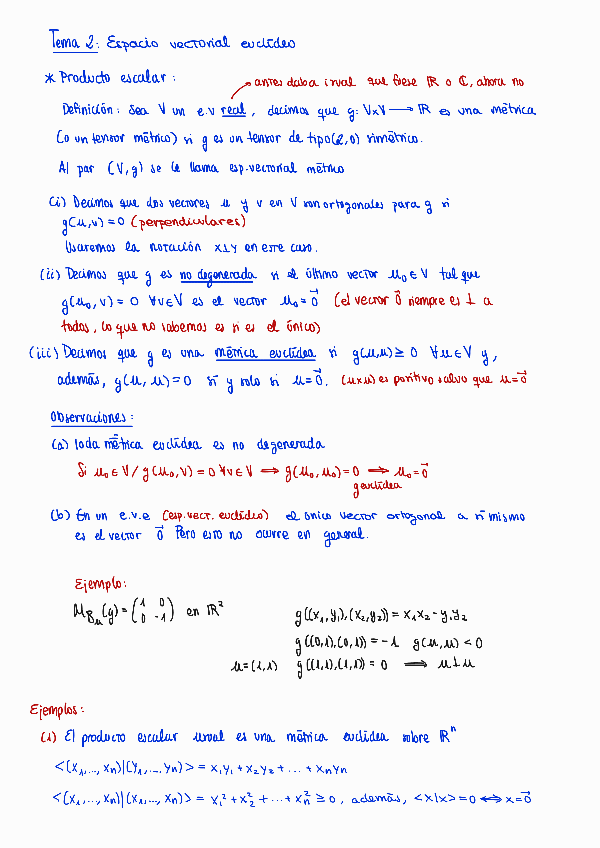 Tema 2: Espacio vectorial euclídeo
* Producto escalar:
antes daba igual que fuese ℝ o ℂ, ahora no
Definición: Sea V un e.v real, decimos que g: V×V → ℝ es una métrica
(o un tensor métrico) si g es un tensor de tipo (2,0) simétrico.
Al par (V,g) se le llama esp. vectorial métrico
(i) Decimos que dos vectores u y v en V son ortogonales para g si
g(u,v) = 0 (perpendiculares)
Usaremos la notación x⊥y en este caso.
(ii) Decimos que g es no degenerada si el último vector u₀ ∈ V tal que
g(u₀, v) = 0 ∀v∈V es el vector u₀ = 0⃗ (el vector 0⃗ siempre es ⊥ a
todos, lo que no sabemos es si es el único)
(iii) Decimos que g es una métrica euclídea si g(u,u) ≥ 0 ∀u∈V y,
además, g(u, u) = 0 si y solo si u = 0⃗. (u×u) es positivo salvo que u = 0⃗
Observaciones:
(a) Toda métrica euclídea es no degenerada
Si u₀ ∈ V / g(u₀, v) = 0 ∀v∈V ⟹ g(u₀, u₀) = 0 ⟹ u₀ = 0⃗
g euclídea
(b) En un e.v.e (esp. vect. euclídeo) el único vector ortogonal a sí mismo
es el vector 0⃗ Pero esto no ocurre en general.
Ejemplo:
M_Bu (g) = (1 0
0 -1) en ℝ²
g((x₁, y₁), (x₂, y₂)) = x₁x₂ - y₁y₂
g((0,1), (0,1)) = -1 g(u,u) < 0
u = (1,1) g((1,1), (1,1)) = 0 ⟹ u⊥u
Ejemplos:
(1) El producto escalar usual es una métrica euclídea sobre ℝⁿ
<(x₁, ..., xₙ)|(y₁, ..., yₙ)> = x₁y₁ + x₂y₂ + ... + xₙyₙ
<(x₁, ..., xₙ)|(x₁, ..., xₙ)> = x₁² + x₂² + ... + xₙ² ≥ 0, además, <x|x> = 0 ⟺ x = 0⃗